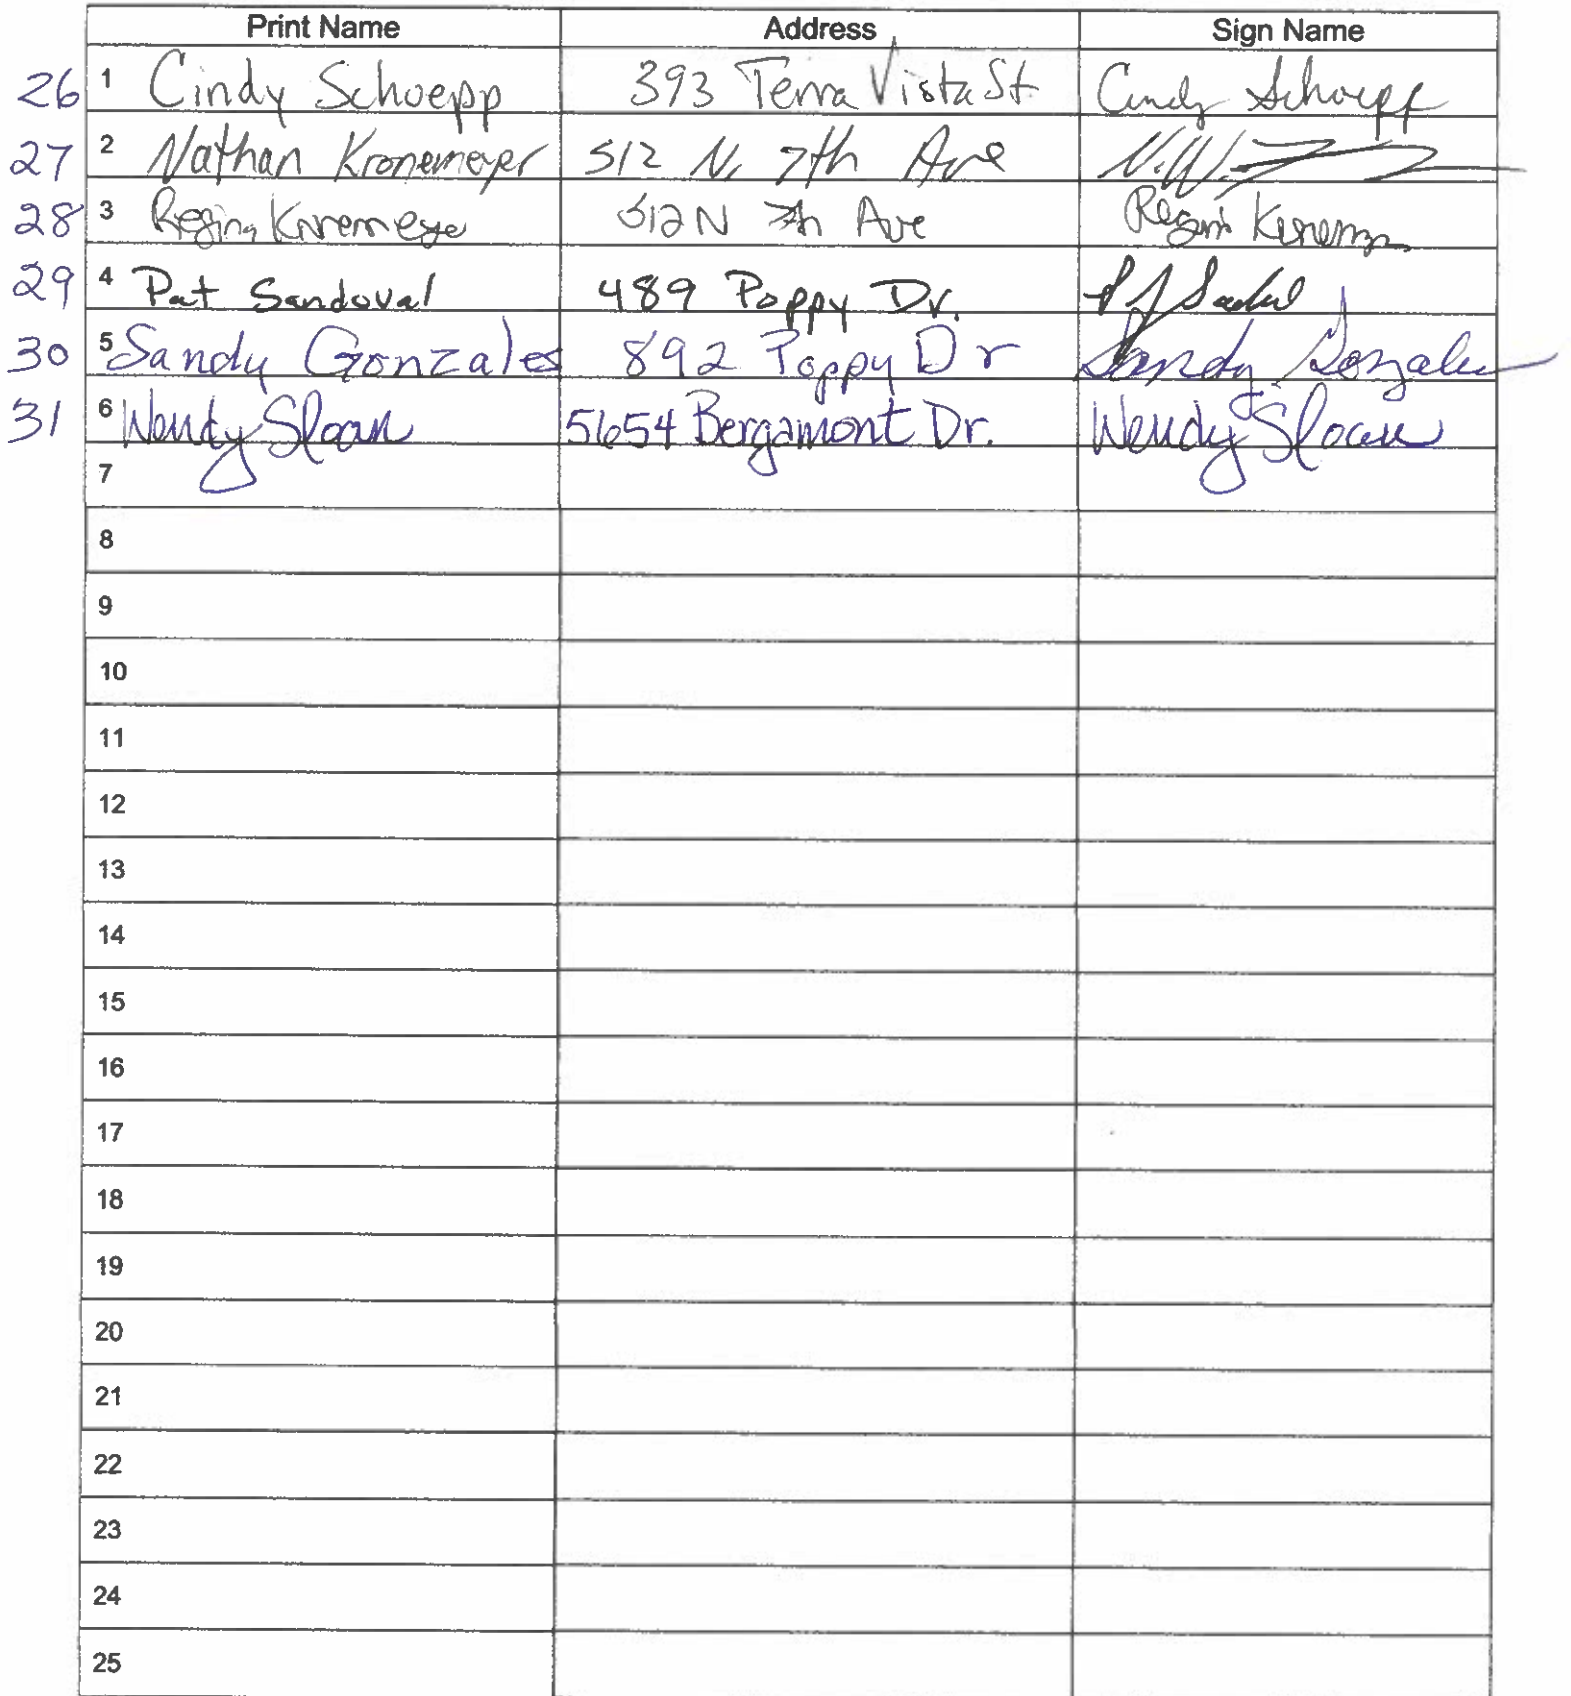 Print Name Address Sign Name
26 1 Cindy Schoepp 393 Terra Vista St Cindy Schoepp
27 2 Nathan Kronemeyer 512 N. 7th Ave N.W.
28 3 Regina Kronemeye 512 N 7th Ave Regina
29 4 Pat Sandoval 489 Poppy Dr.
30 5 Sandy Gonzales 892 Poppy Dr Sandy Gonzales
31 6 Wendy Sloan 5654 Bergamont Dr. Wendy Sloan
7
8
9
10
11
12
13
14
15
16
17
18
19
20
21
22
23
24
25